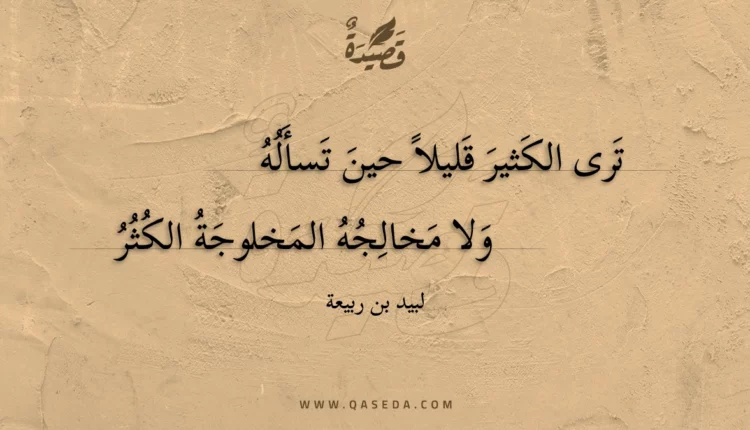 قَصِيدَةٌ
تَرى الكَثيرَ قَليلاً حينَ تَسأَلُهُ
وَلا مَخالِجُهُ المَخلوجَةُ الكُثُرُ
لبيد بن ربيعة
WWW.QASEDA.COM